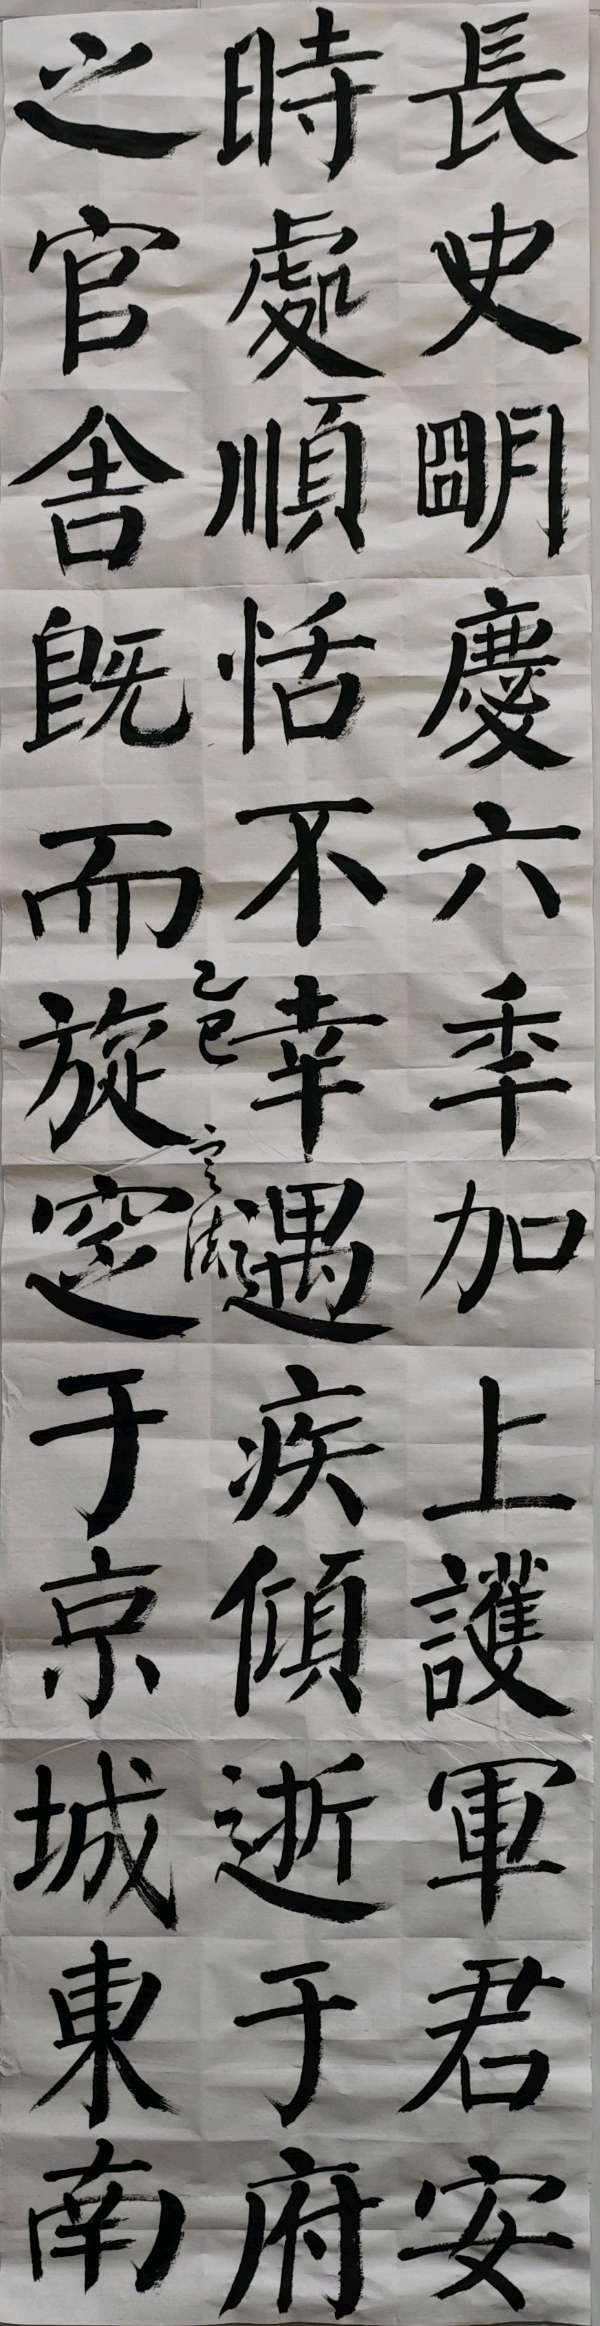 長史明慶六季加上護軍君安
時處順恬不幸遇疾傾逝于府
之官舍既而旋窆于京城東南
乙巳